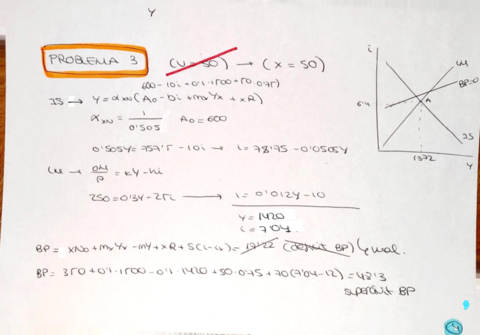 Y
PROBLEMA 3 (V=50) → (X=50)
600-10i+0'1·1500+50·0'75)
IS → Y = αXN(A0 - bi + mxYx + xR)
αXN = 1/0'505 A0 = 600
0'505Y = 757'5 - 10i → i = 78'75 - 0'0505Y
LM → OM/P = kY - hi
250 = 0'3Y - 25i → i = 0'012Y - 10
Y = 1420
i = 7'04
BP = XN0 + mxYx - mY + xR + S(i-i*) = 17'22 (deficit BP) } mal.
BP = 350 + 0'1·1500 - 0'1·1420 + 50·0'75 + 70(7'04-12) = 48'3
SUPERÁVIT BP
i
LM
BP=0
6'4
A
IS
1372
Y